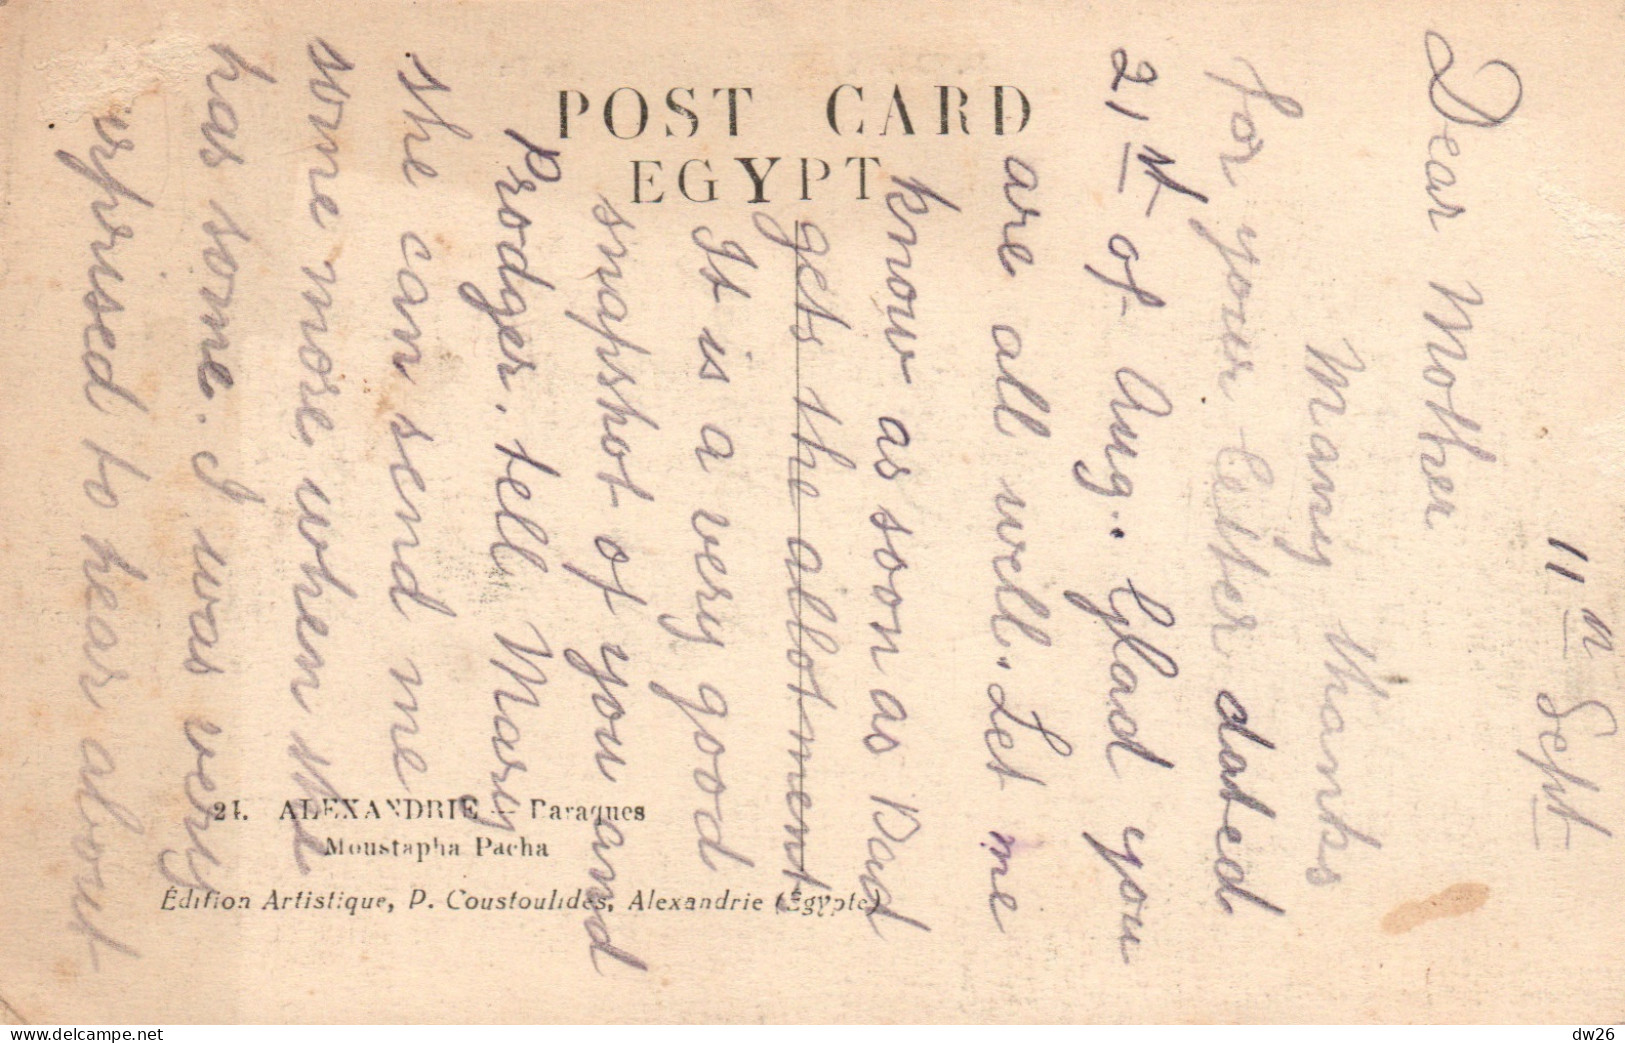 POST CARD
EGYPT
11th Sept
Dear Mother
Many thanks
for your letter dated
21st of Aug.. Glad you
are all well. Let me
know as soon as Dad
gets the allotment
It is a very good
snapshot of you and
Prodger. tell Mary
she can send me
some more when she
has some. I was very
surprised to hear about
24. ALEXANDRIE — Baraques
Moustapha Pacha
Édition Artistique, P. Coustoulidès, Alexandrie (Égypte)
delcampe.net
dw26